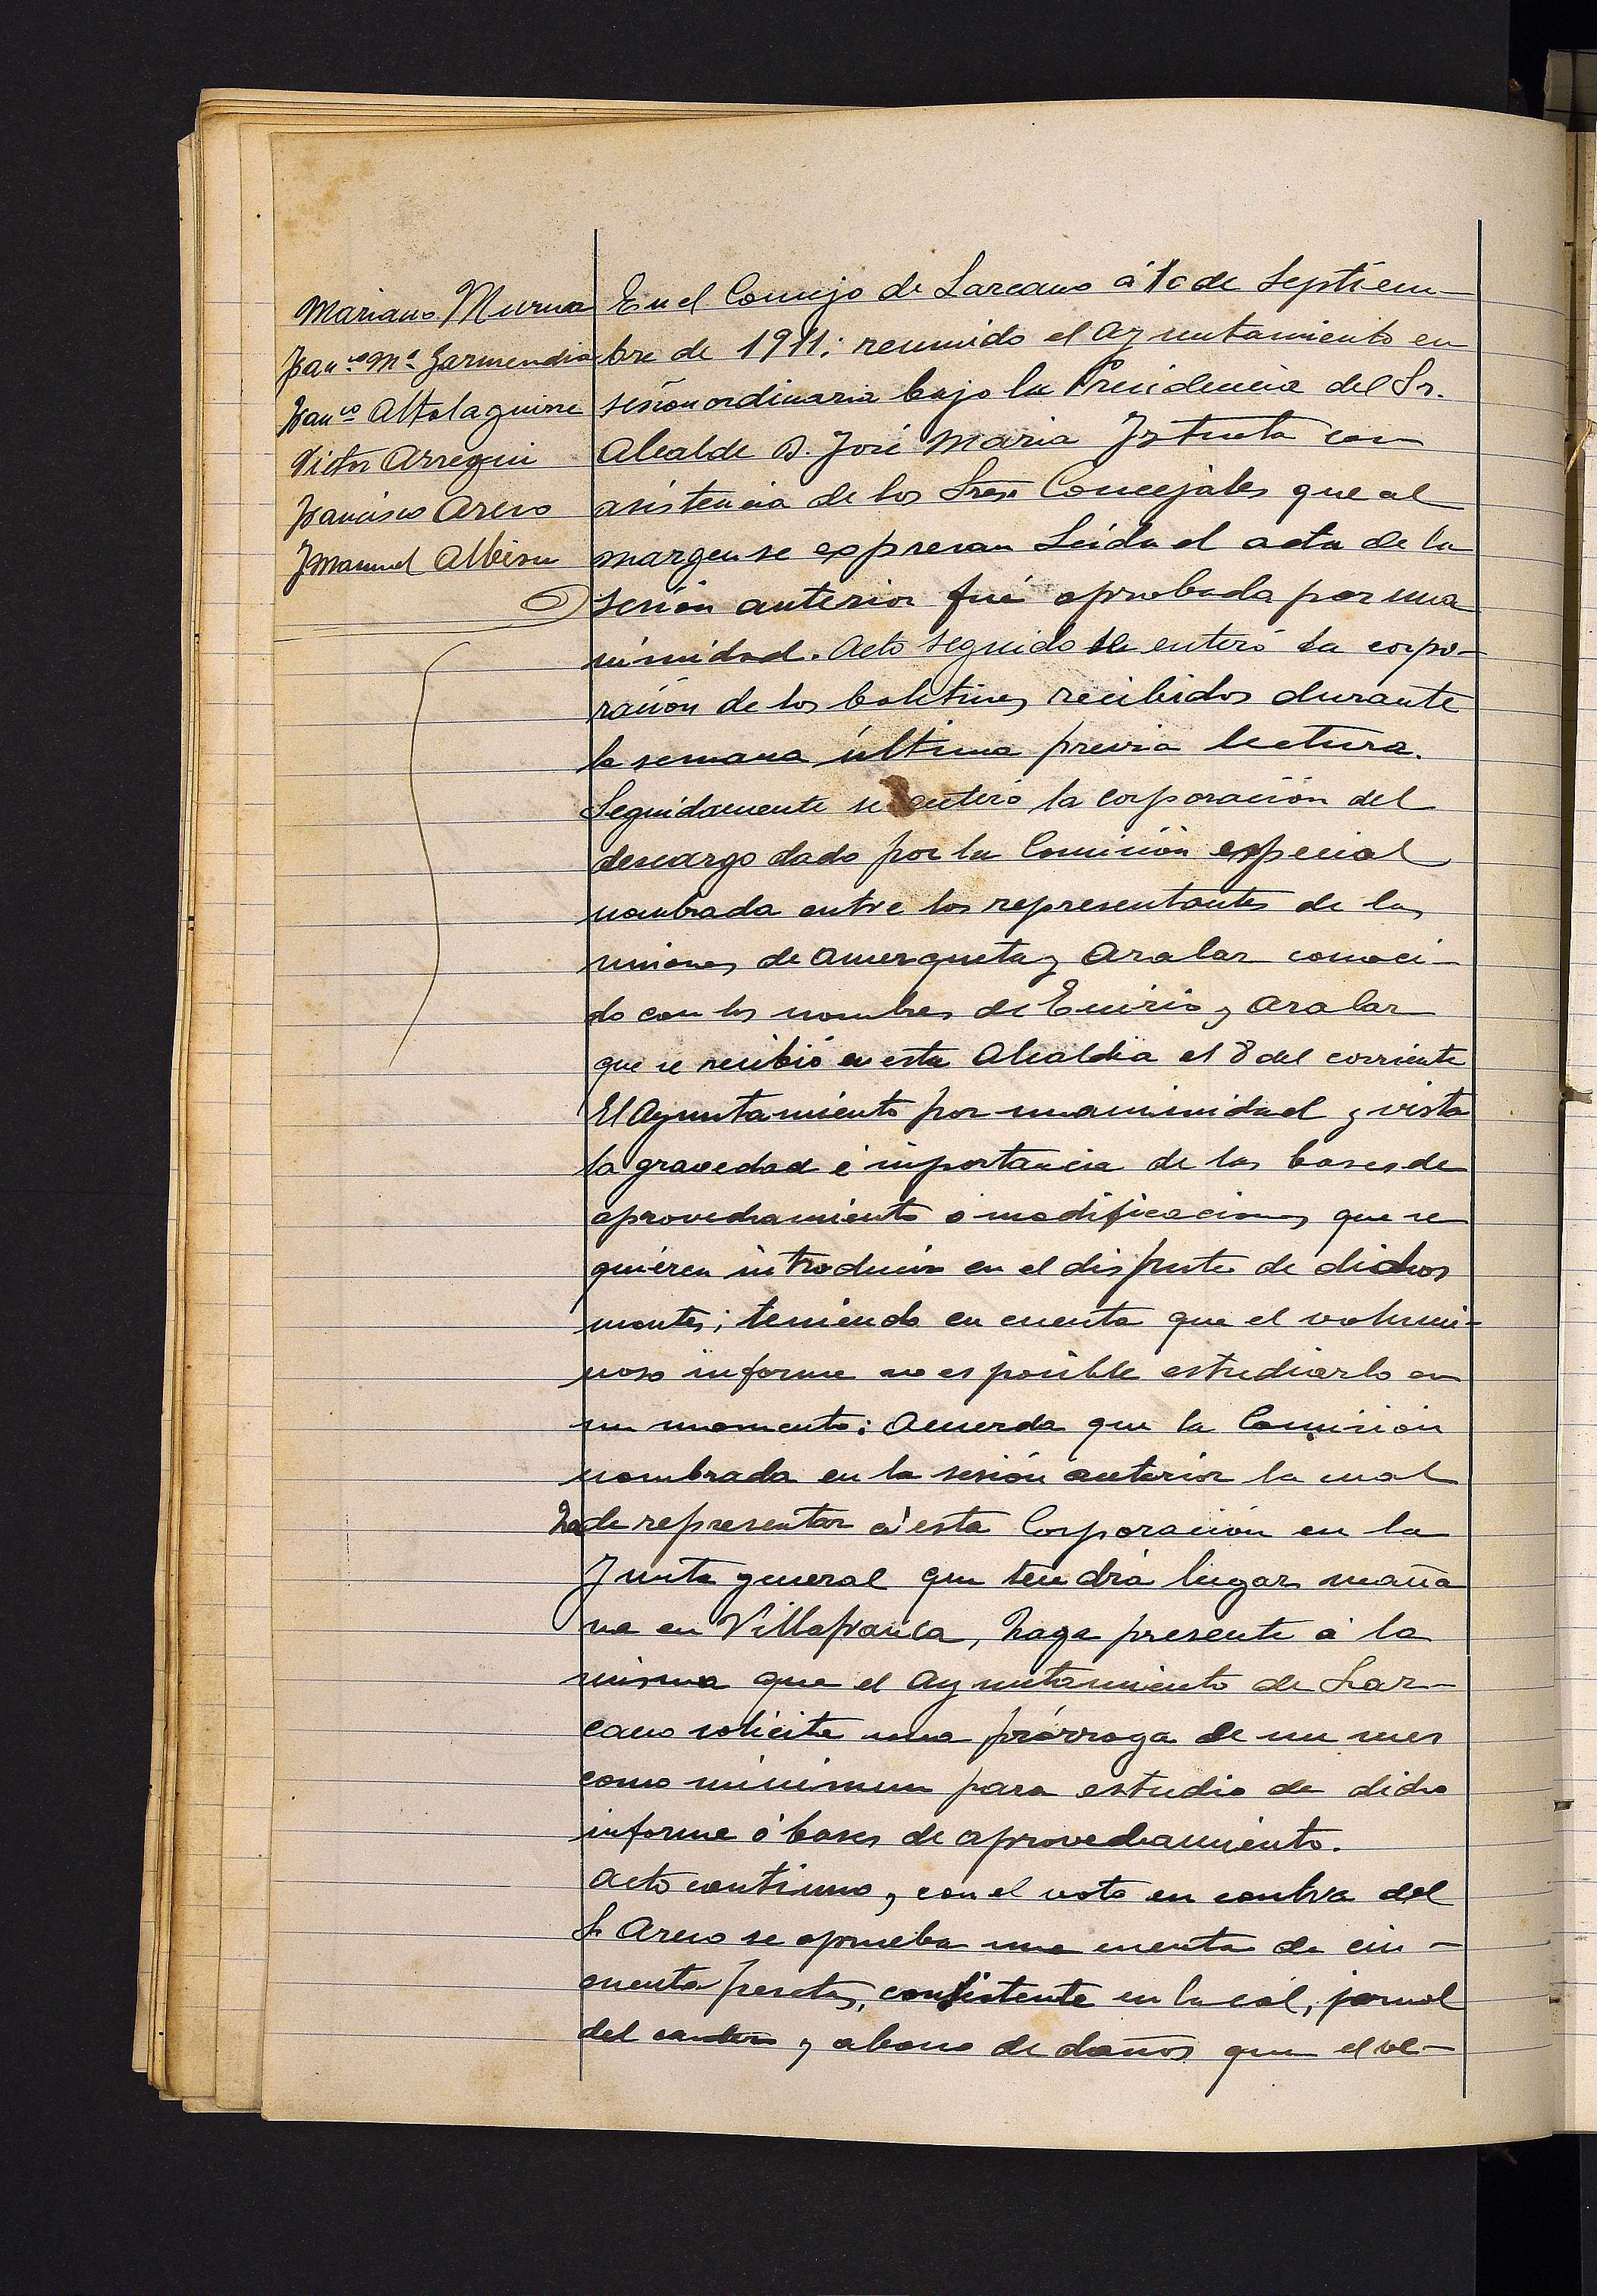 Mariano Murua
Fran.co M.a Garmendia
Fran.co Altolaguirre
Victor Arregui
Francisco Areso
J Manuel Albisu
En el Concejo de Lazcano á 10 de Septiem-
bre de 1911; reunido el Ayuntamiento en
sesión ordinaria bajo la Presidencia del Sr.
Alcalde D. José Maria Iztueta con
asistencia de los Sres. Concejales que al
margen se expresan Leida el acta de la
sesión anterior fué aprobada por una
nimidad. Acto seguido se enteró la corpo-
ración de los boletines recibidos durante
la semana última previa lectura.
Seguidamente se enteró la corporación del
descargo dado por la Comisión especial
nombrada entre los representantes de las
uniones de Amezqueta y Aralar conoci-
do con los nombres de Enirio y Aralar
que se recibió en esta Alcaldia el 8 del corriente
El Ayuntamiento por unanimidad y vista
la gravedad é importancia de las bases de
aprovechamiento o modificaciones que se
quieren introducir en el disfrute de dichos
montes; teniendo en cuenta que el volumi-
noso informe no es posible estudiarlo en
un momento: Acuerda que la Comisión
nombrada en la sesión anterior la cual
ha de representar á esta Corporación en la
Junta general que tendrá lugar maña
na en Villafranca, haga presente á la
misma que el Ayuntamiento de Laz-
cano solicita una prórroga de un mes
como minimun para estudio de dicho
informe ó bases de aprovechamiento.
Acto continuo y con el voto en contra del
Sr Areso se aprueba una cuenta de cin-
cuenta pesetas, consistente en la cal, jornal
del y abono de daños que el ve-